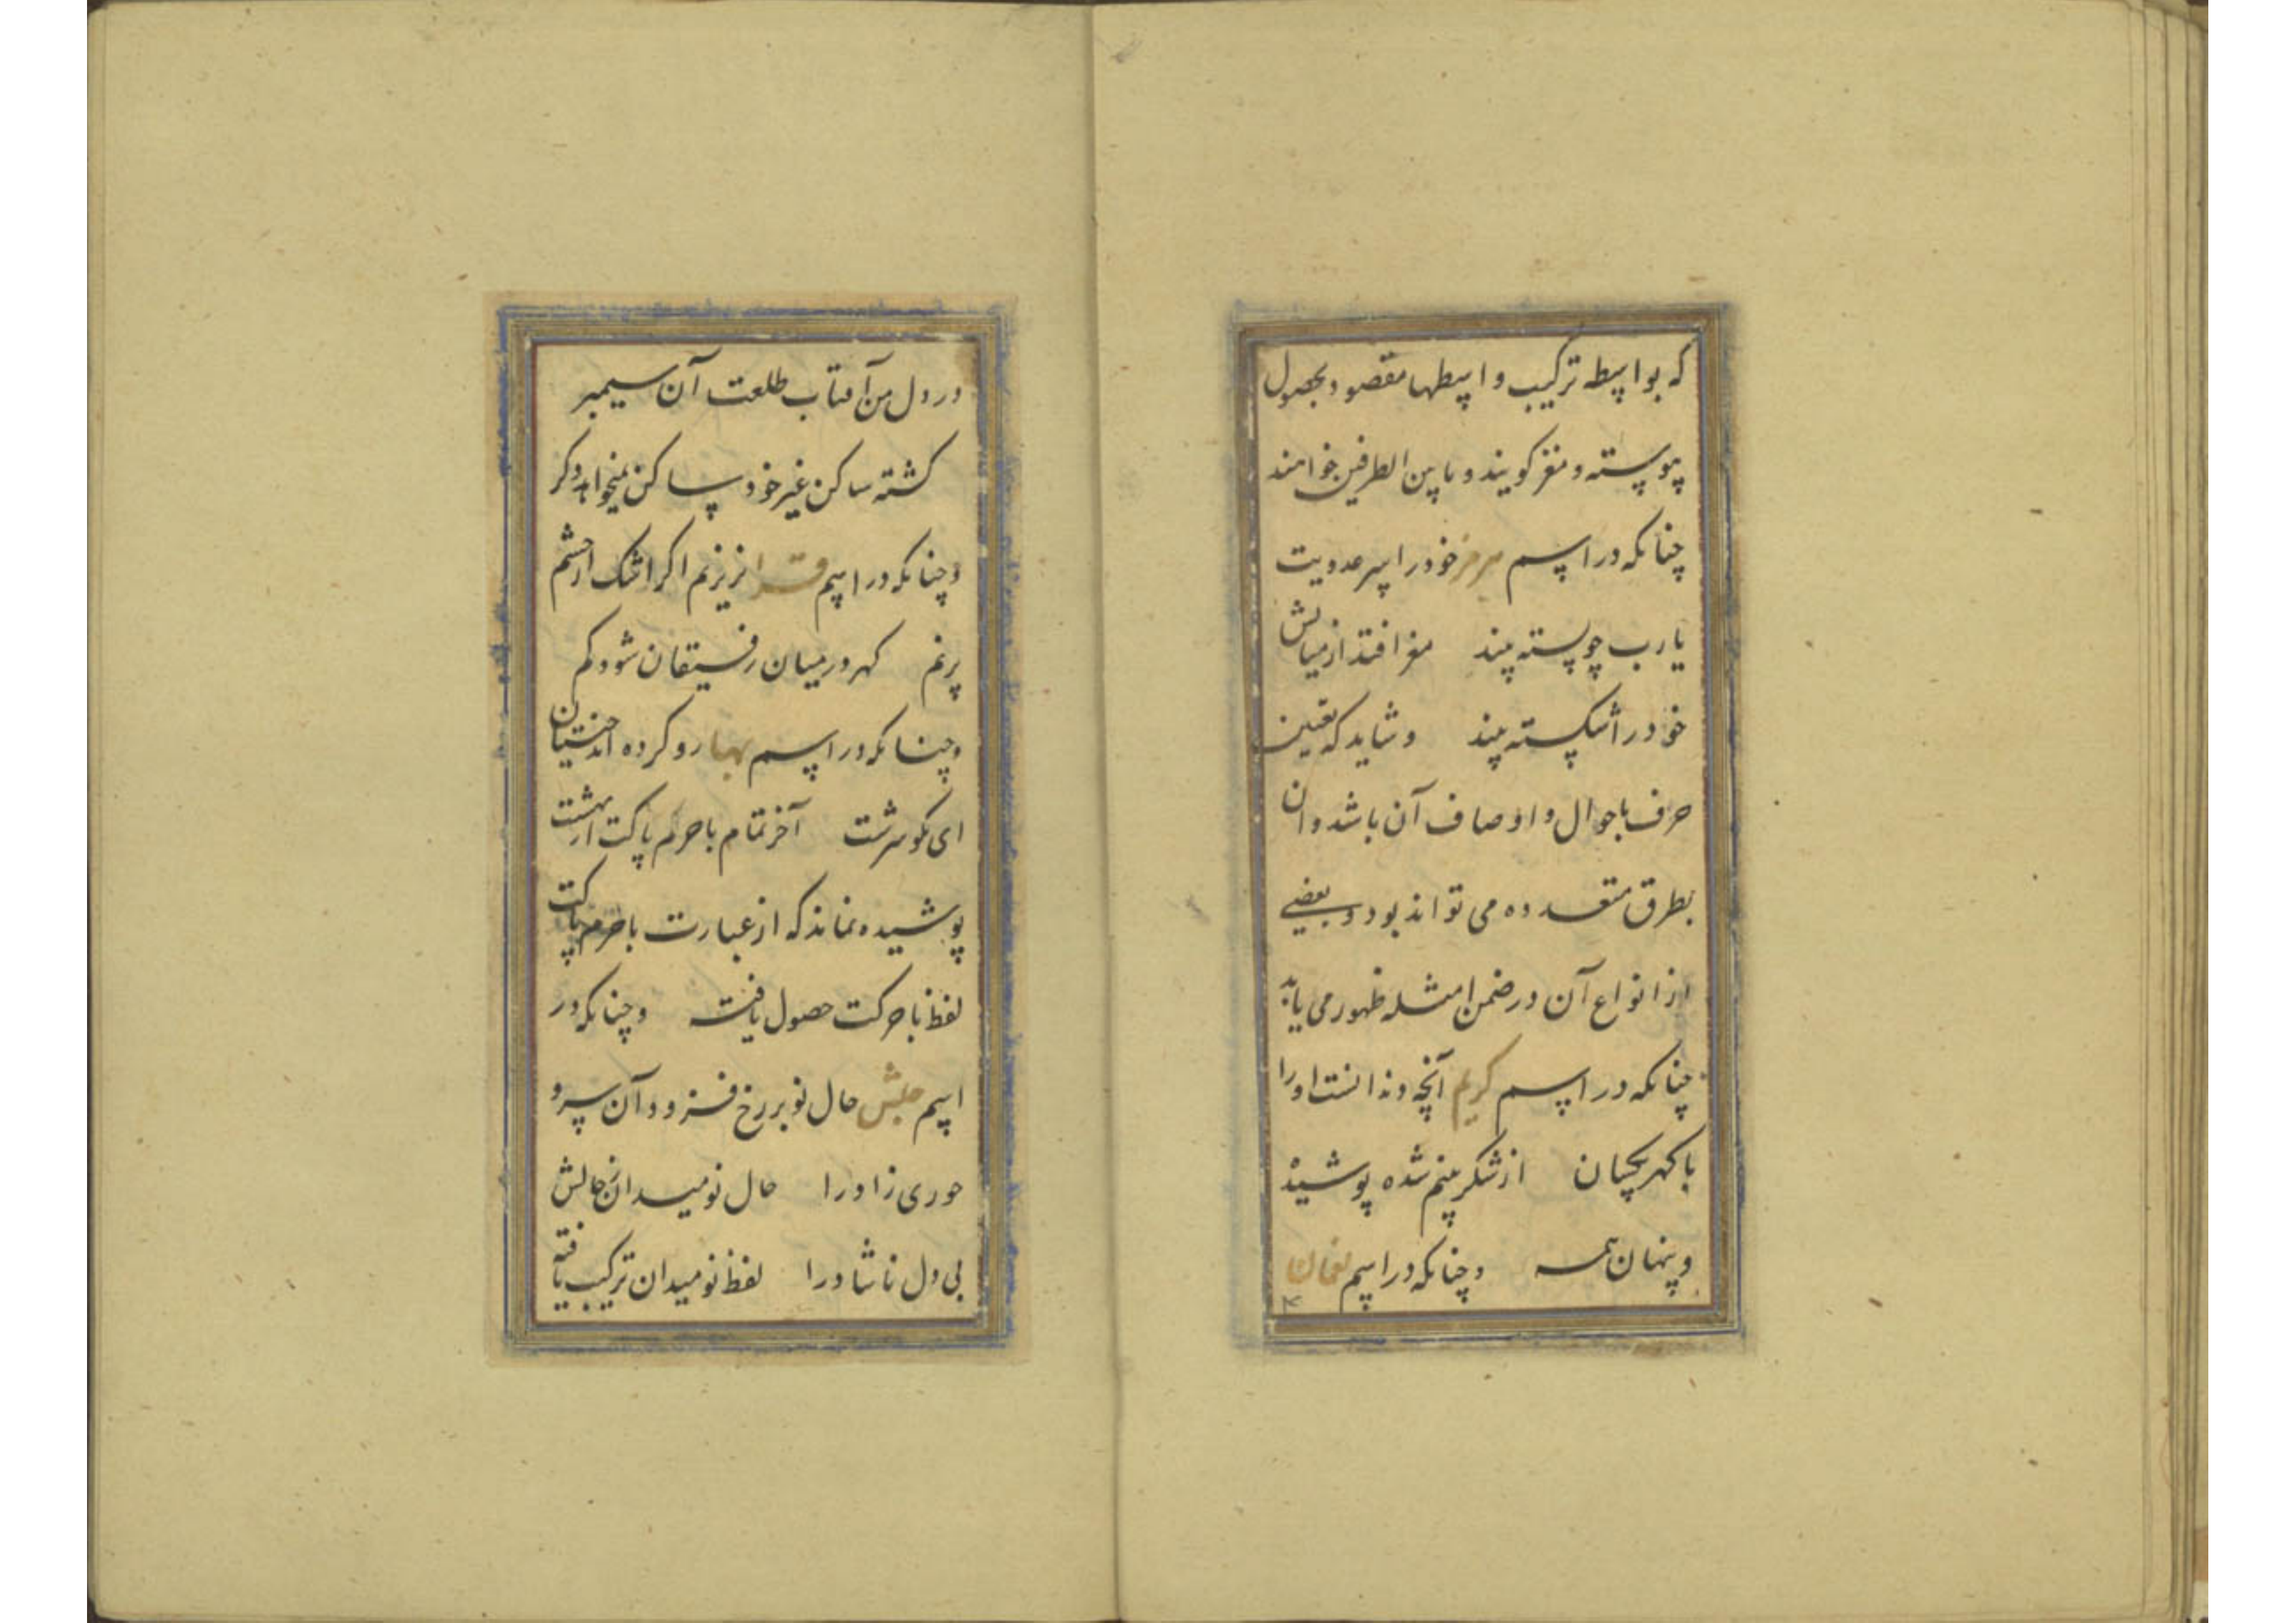 که بواسطه ترکیب واسطها مقصود بحصول
پیوسته و مغز کویند و مابین الطرفین خوانند
چنانکه در اسم هرمز خود را سر عدویت
یا رب چو پسته بیند مغز افتد از میانش
خود را شکسته بیند و شاید که تعیین
حرف باحوال و اوصاف آن باشد و آن
بطرق متعدده می تواند بود و بعضی
از انواع آن در ضمن امثله ظهور می یابد
چنانکه در اسم کریم آنچه دندانست او را
با کهر یکسان از شکر بینم شده پوشیده
و پنهان همه و چنانکه در اسم نعمان
در دل من آفتاب طلعت آن سیمبر
کشته ساکن غیر خود ساکن نمیخواهد دکر
و چنانکه در اسم قرا نریزم اکر اشک از چشم
پرنم کهر در میان رفیقان شود کم
و چنانکه در اسم بهار رو کرده اند جنتیان
ای نکو سرشت آخر تمام با حرم پاکت از بهشت
پوشیده نماند که از عبارت با حرم پاکت
لفظ با حرکت حصول یافته و چنانکه در
اسم حبش خال نو بر رخ فزود آن سرو
حوری زاد را حال نومیدان ز خالش
بی دل ناشاد را لفظ نومیدان ترکیب یافته